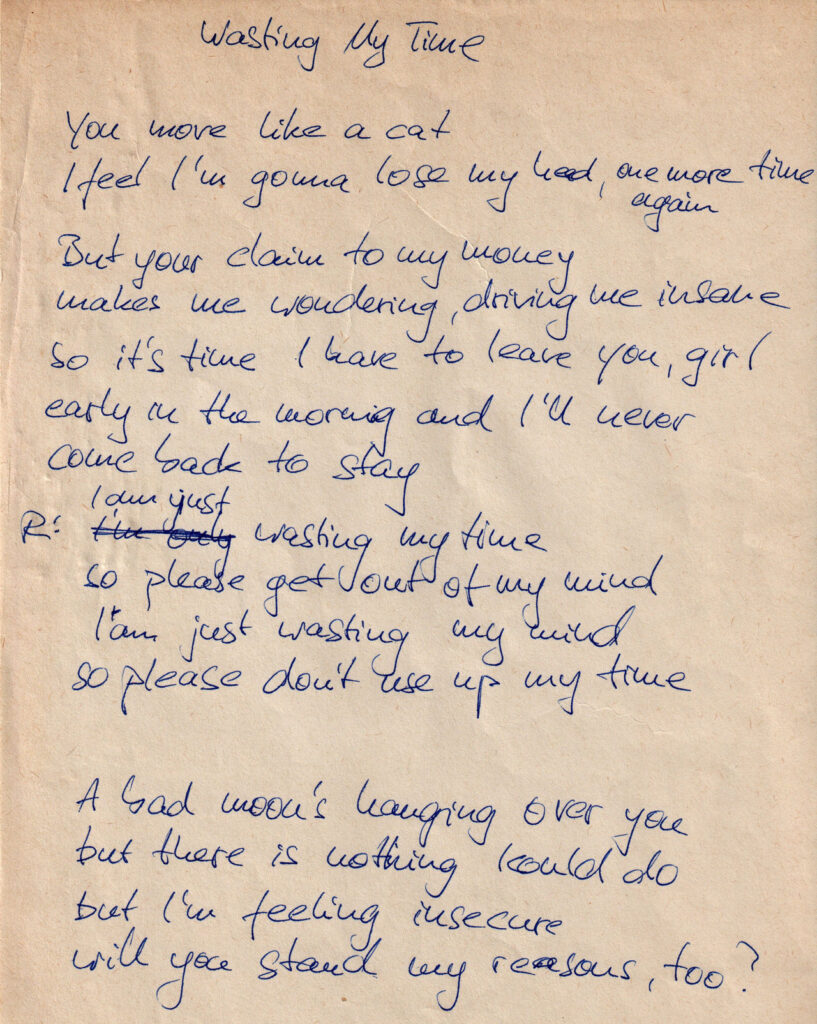 Wasting My Time
You move like a cat
I feel I'm gonna lose my head, one more time
again
But your claim to my money
makes me wondering, driving me insane
so it's time I have to leave you, girl
early in the morning and I'll never
come back to stay
I am just
R: I'm only wasting my time
so please get out of my mind
I'am just wasting my mind
so please don't use up my time
A bad moon's hanging over you
but there is nothing I could do
but I'm feeling insecure
will you stand my reasons, too?